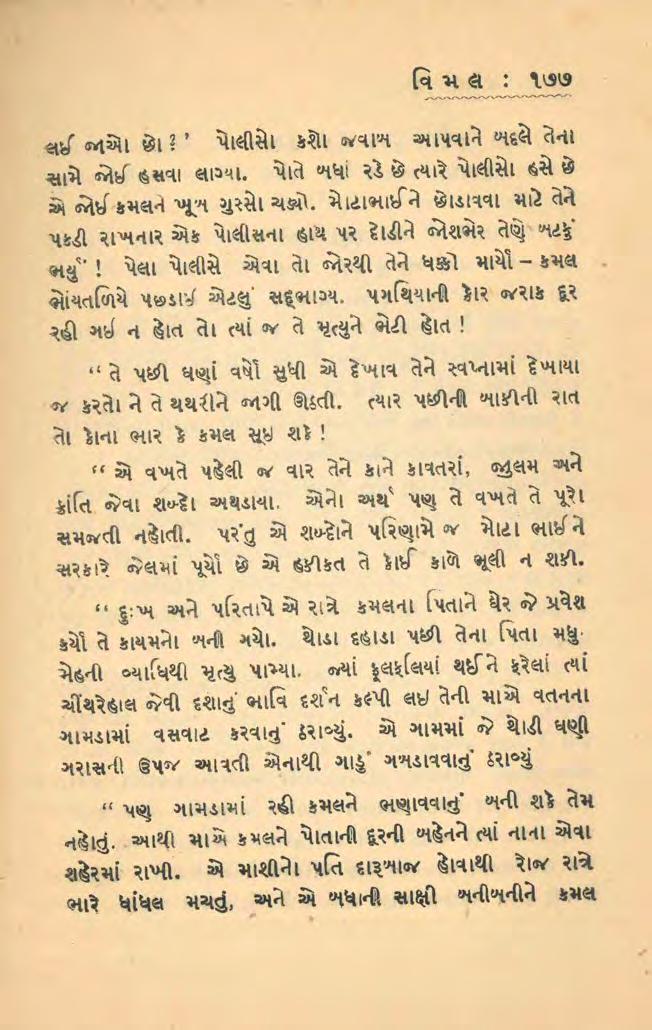 વિમલ : ૧૭૭
લઈ જાઓ છો ?’ પોલીસો કશો જવાબ આપવાને બદલે તેના
સામે જોઈ હસવા લાગ્યા. પોતે બધાં રડે છે ત્યારે પોલીસો હસે છે
એ જોઈ કમલને ખૂબ ગુસ્સો ચડ્યો. મોટાભાઈને છોડાવવા માટે તેને
પકડી રાખનાર એક પોલીસના હાથ પર દોડીને જોશભેર તેણે બટકું
ભર્યું ! પેલા પોલીસે એવા તો જોરથી તેને ધક્કો માર્યો – કમલ
ભોંયતળિયે પછડાઈ એટલું સદ્ભાગ્ય. પગથિયાની કોર જરાક દૂર
રહી ગઇ ન હોત તો ત્યાં જ તે મૃત્યુને ભેટી હોત !
“ તે પછી ઘણાં વર્ષો સુધી એ દેખાવ તેને સ્વપ્નામાં દેખાયા
જ કરતો ને તે થથરીને જાગી ઊઠતી. ત્યાર પછીની બાકીની રાત
તો કોના ભાર કે કમલ સૂઇ શકે !
“ એ વખતે પહેલી જ વાર તેને કાને કાવતરાં, જુલમ અને
ક્રાંતિ જેવા શબ્દો અથડાયા. એનો અર્થ પણ તે વખતે તે પૂરો
સમજતી નહોતી. પરંતુ એ શબ્દોને પરિણામે જ મોટા ભાઈને
સરકારે જેલમાં પૂર્યો છે એ હકીકત તે કોઈ કાળે ભૂલી ન શકી.
“ દુઃખ અને પરિતાપે એ રાત્રે કમલના પિતાને ઘેર જે પ્રવેશ
કર્યો તે કાયમનો બની ગયો. થોડા દહાડા પછી તેના પિતા મધુ-
મેહની વ્યાધિથી મૃત્યુ પામ્યા. જ્યાં ફૂલફલિયાં થઈને ફરેલાં ત્યાં
ચીંથરેહાલ જેવી દશાનું ભાવિ દર્શન કલ્પી લઇ તેની માએ વતનના
ગામડામાં વસવાટ કરવાનું ઠરાવ્યું. એ ગામમાં જે થોડી ઘણી
ગરાસની ઉપજ આવતી એનાથી ગાડું ગબડાવવાનું ઠરાવ્યું
“ પણ ગામડામાં રહી કમલને ભણાવવાનું બની શકે તેમ
નહોતું. આથી માએ કમલને પોતાની દૂરની બહેનને ત્યાં નાના એવા
શહેરમાં રાખી. એ માશીનો પતિ દારૂબાજ હોવાથી રોજ રાત્રે
ભારે ધાંધલ મચતું, અને એ બધાની સાક્ષી બનીબનીને કમલ